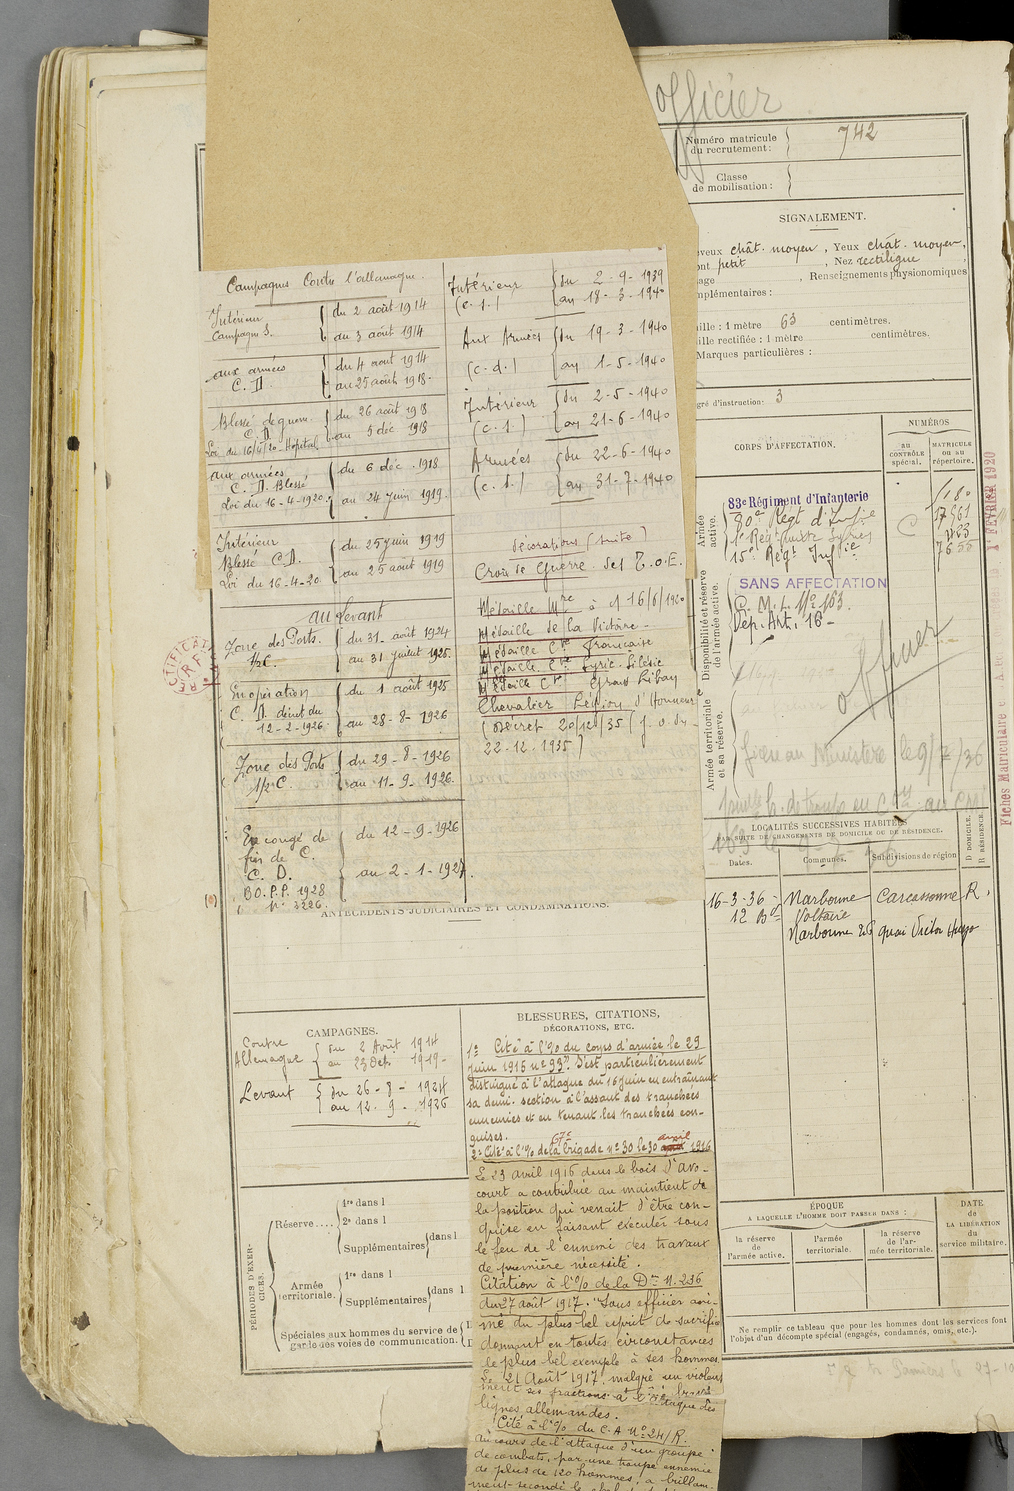 Officier
Numéro matricule
du recrutement :
742
Classe
de mobilisation :
SIGNALEMENT.
chât. moyen, Yeux chât. moyen,
petit, Nez rectiligne,
Renseignements physionomiques
mplémentaires :
ille : 1 mètre 63 centimètres.
ille rectifiée : 1 mètre centimètres.
Marques particulières :
gré d'instruction : 3
CORPS D'AFFECTATION.
NUMÉROS
AU
CONTRÔLE
spécial.
MATRICULE
ou au
répertoire.
Armée
active.
83e Régiment d'Infanterie
80e Régt d'Infie
15e Régt Infie
C
Disponibilité et réserve
de l'armée active.
SANS AFFECTATION
C. M. I. No 163.
Dép. Art. 16
officier
Armée territoriale
et sa réserve.
Ministère le 9/7/36
LOCALITÉS SUCCESSIVES HABITÉES
PAR SUITE DE CHANGEMENTS DE DOMICILE OU DE RÉSIDENCE.
D DOMICILE.
R RÉSIDENCE.
Dates.
Communes.
Subdivisions de région
16-3-36 - Narbonne Carcassonne R.
12 Bd Voltaire
Narbonne 26 quai Victor Hugo
ÉPOQUE
A LAQUELLE L'HOMME DOIT PASSER DANS :
DATE
de
LA LIBÉRATION
du
service militaire.
la réserve
de
l'armée active.
l'armée
territoriale.
la réserve
de l'ar-
mée territoriale.
Ne remplir ce tableau que pour les hommes dont les services font
l'objet d'un décompte spécial (engagés, condamnés, omis, etc.).
Campagnes Contre l'allemagne.
Intérieur
Campagne S.
du 2 août 1914
au 3 août 1914
aux armées
C. D.
du 4 août 1914
au 25 août 1918.
Blessé de guerre
C. D.
Loi du 16/4/20 - Hôpital
du 26 août 1918
au 5 déc 1918
aux armées
C. D. Blessé
Loi du 16-4-1920.
du 6 déc. 1918
au 24 juin 1919.
Intérieur
Blessé C.D.
Loi du 16-4-20.
du 25 juin 1919
au 25 août 1919
au Levant
Zone des Ports.
1/2 C.
du 31 août 1924
au 31 juillet 1925.
En opération
C. D. décret du
12-2-1926.
du 1 août 1925
au 28-8-1926
Zone des Ports
1/2 C.
du 29-8-1926
au 11-9-1926.
En congé de
fin de C.
C. D.
BO.P.P. 1928
No 3226.
du 12-9-1926
au 2-1-1927.
Intérieur
(c. s.)
du 2-9-1939
au 18-3-1940
Aux Armées
(c. d.)
du 19-3-1940
au 1-5-1940
Intérieur
(c. s.)
du 2-5-1940
au 21-6-1940
Armées
(c. d.)
du 22-6-1940
au 31-7-1940
Décorations (suite)
Croix de Guerre des T.O.E.
Médaille Mre à c/ 16/6/1920
Médaille de la Victoire -
Médaille Cve française
Médaille Cve Syrie-Cilicie
Médaille Cve Grand Liban
Chevalier Légion d'Honneur
(Décret 20/12/35 (J.O. du
22-12-1935)
ANTÉCÉDENTS JUDICIAIRES ET CONDAMNATIONS.
CAMPAGNES.
Contre
Allemagne
du 2 Août 1914
au 23 Oct. 1919-
Levant
du 26-8-1924
au 12-9-1926
BLESSURES, CITATIONS,
DÉCORATIONS, ETC.
1° Cité à l'% du corps d'armée le 29
juin 1915 n° 93". S'est particulièrement
distingué à l'attaque du 16 juin en entraînant
sa demi-section à l'assaut des tranchées
ennemies et en tenant les tranchées con-
quises.
2° Cité à l'% de la 67e brigade n° 30 le 30 avril 1916
Le 23 avril 1916 dans le bois d'Avo-
court a contribué au maintient de
la position qui venait d'être con-
quise en faisant exécuter sous
le feu de l'ennemi des travaux
de première nécessité.
Citation à l'% de la Don N. 236
du 27 août 1917. "Sous officier ani-
mé du plus bel esprit de sacrifice
donnant en toutes circonstances
le plus bel exemple à ses hommes.
Le 21 Août 1917, malgré un violent
lignes allemandes.
Cité à l'% du C.A N° 24/R.
au cours de l'attaque d'un groupe
de combats, par une troupe ennemie
de plus de 120 hommes, a brillam-
ment secondé le
PÉRIODES D'EXER-
CICES.
Réserve....
1re dans l
2e dans l
Supplémentaires dans l
Armée
territoriale.
1re dans l
Supplémentaires dans l
Spéciales aux hommes du service de
garde des voies de communication.